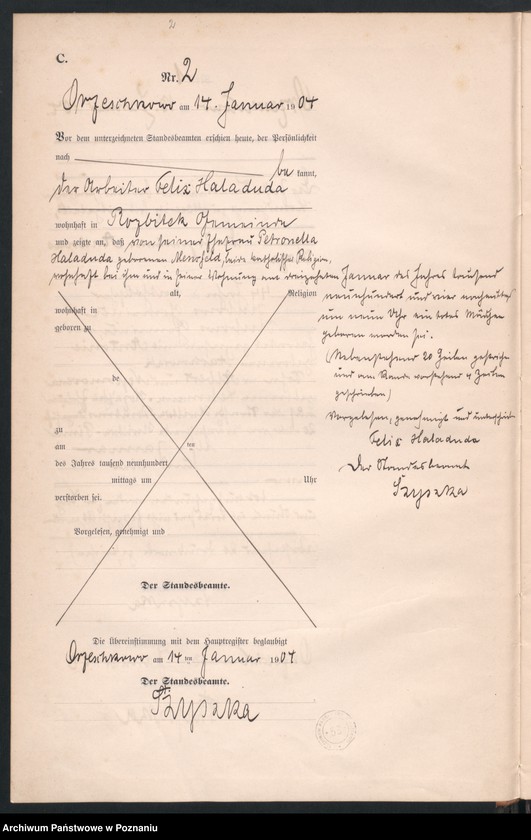 2
C.
Nr. 2
Orzeschkowo am 14. Januar 1904
Vor dem unterzeichneten Standesbeamten erschien heute, der Persönlichkeit
nach be kannt,
der Arbeiter Felix Haladuda
wohnhaft in Rozbitek Gemeinde
und zeigte an, daß von seiner Ehefrau Petronella
Haladuda geborenen beide katholischer Religion,
wohnhaft bei ihm und in seiner Wohnung am dreizehnten Januar des Jahres tausend
neunhundert und vier
um neun Uhr ein totes Mädchen
geboren worden sei.
(Nebenstehend 20 Zeilen gestrichen
und am Rande vorstehend 4 Zeilen
geschrieben)
Vorgelesen, genehmigt und
Felix Haladuda
Der Standesbeamte
Szyszka
alt, Religion
wohnhaft in
geboren zu
de
zu
am ten
des Jahres tausend neunhundert
mittags um Uhr
verstorben sei.
Vorgelesen, genehmigt und
Der Standesbeamte.
Die Übereinstimmung mit dem Hauptregister beglaubigt
Orzeschkowo am 14 ten Januar 1904
Der Standesbeamte.
Szyszka
Archiwum Państwowe w Poznaniu